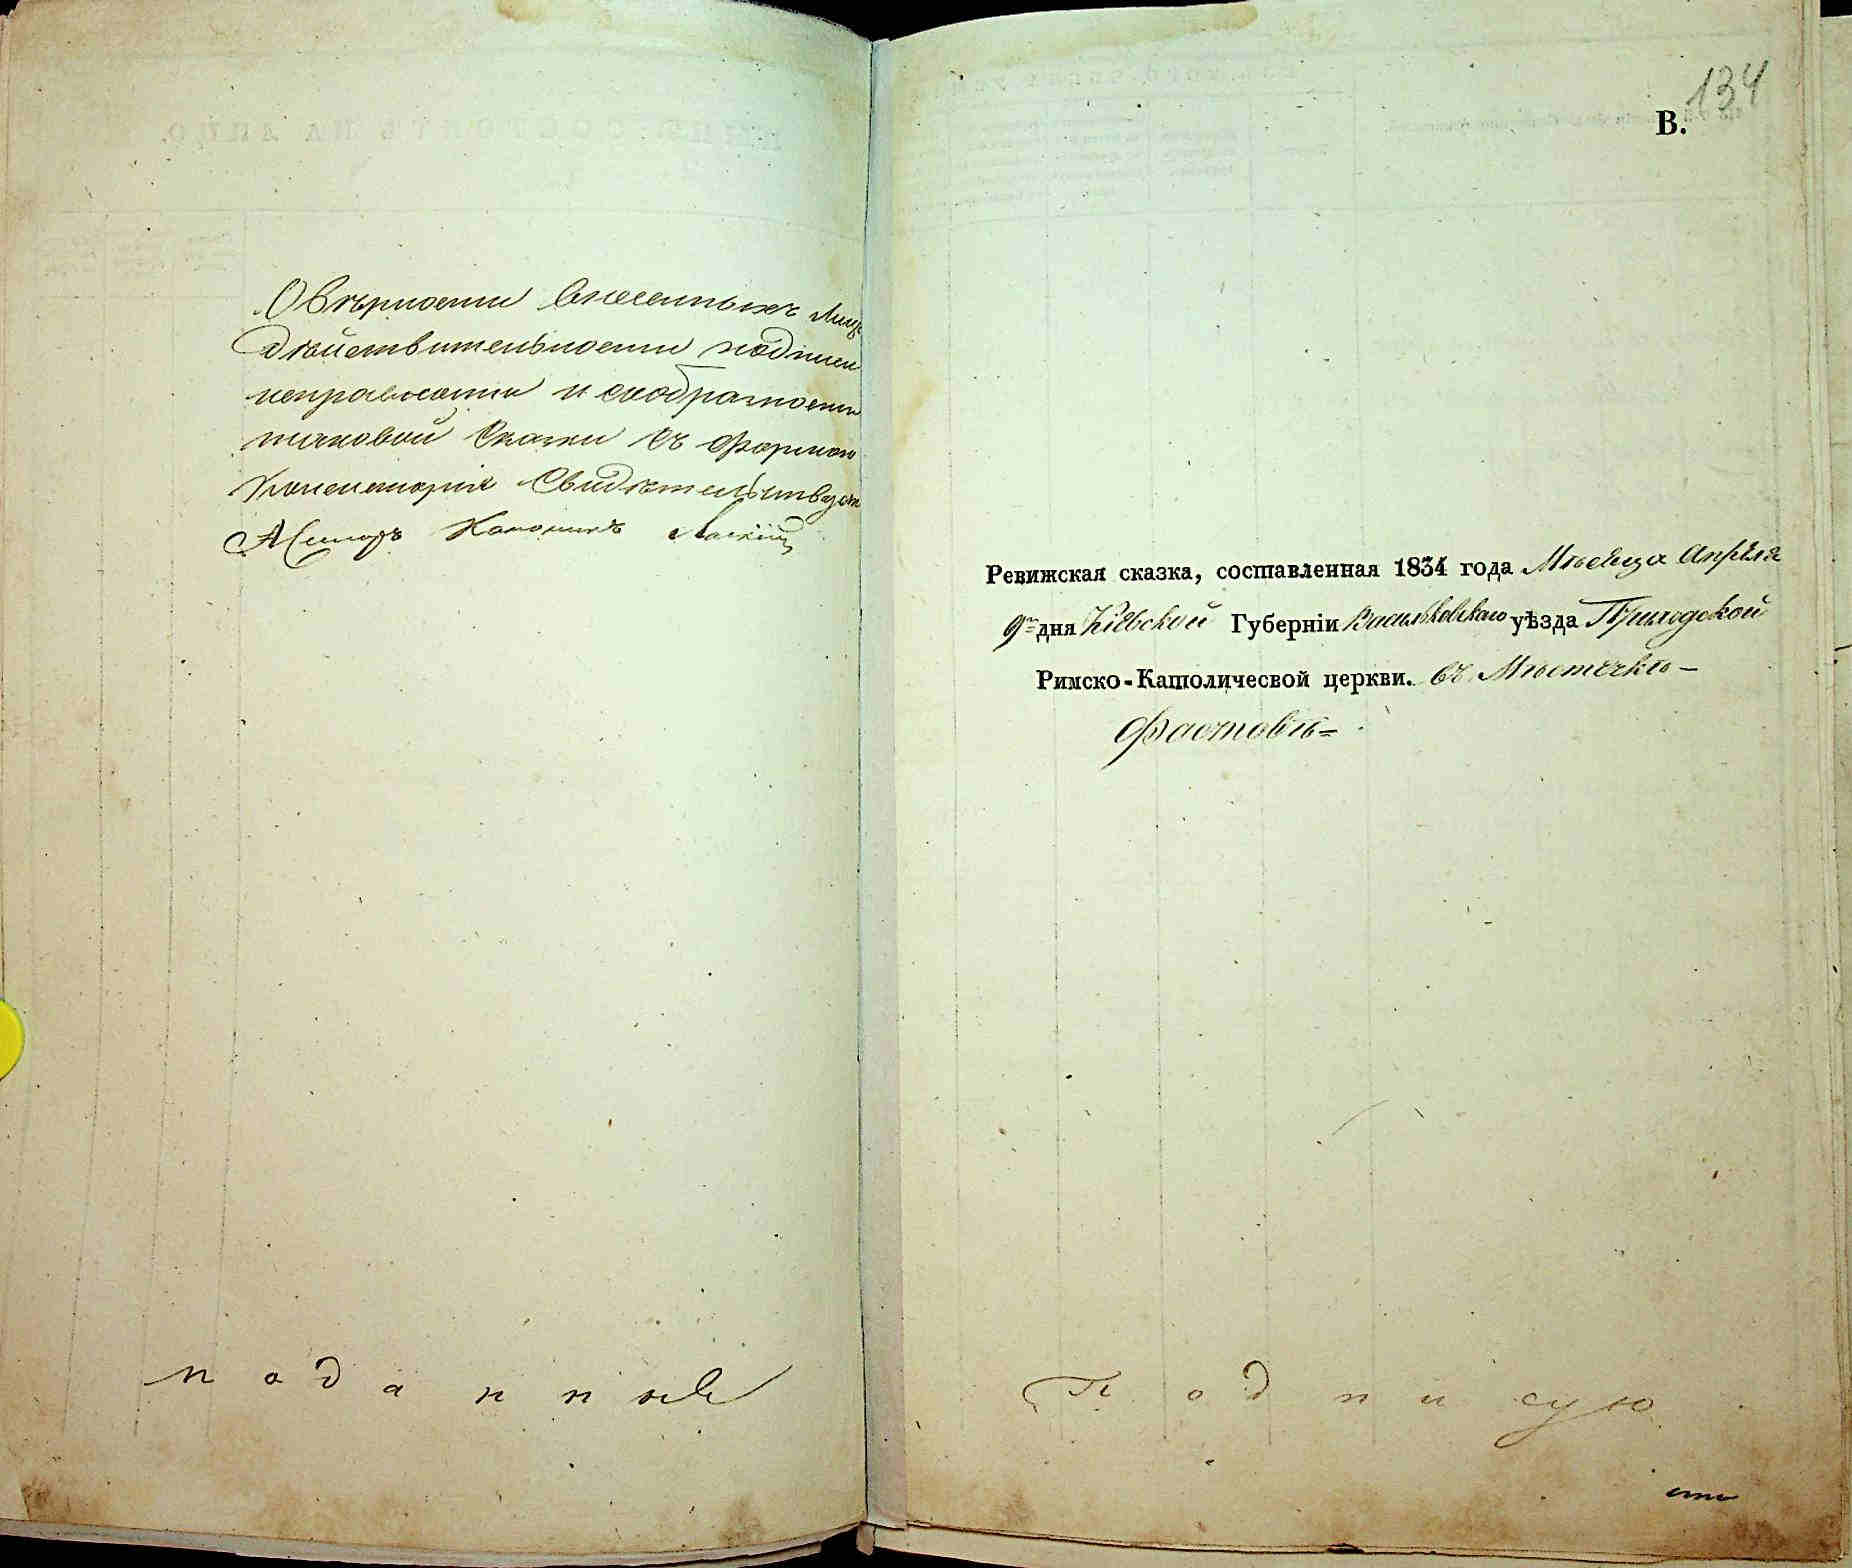 О вѣрности внесенныхъ Лицъ
дѣйствительности подписи
исправности и сообразности
таковой Сказки съ формою
Консисторія Свидѣтельствуетъ
Асесоръ Каноникъ
поданные
134
В.
Ревижская сказка, составленная 1834 года Мѣсяца Апрѣля
9го дня Кіевской Губерніи Васильковского уѣзда Приходской
Римско-Католичесвой церкви. въ Мѣстечкѣ
Фастовѣ
Подписую